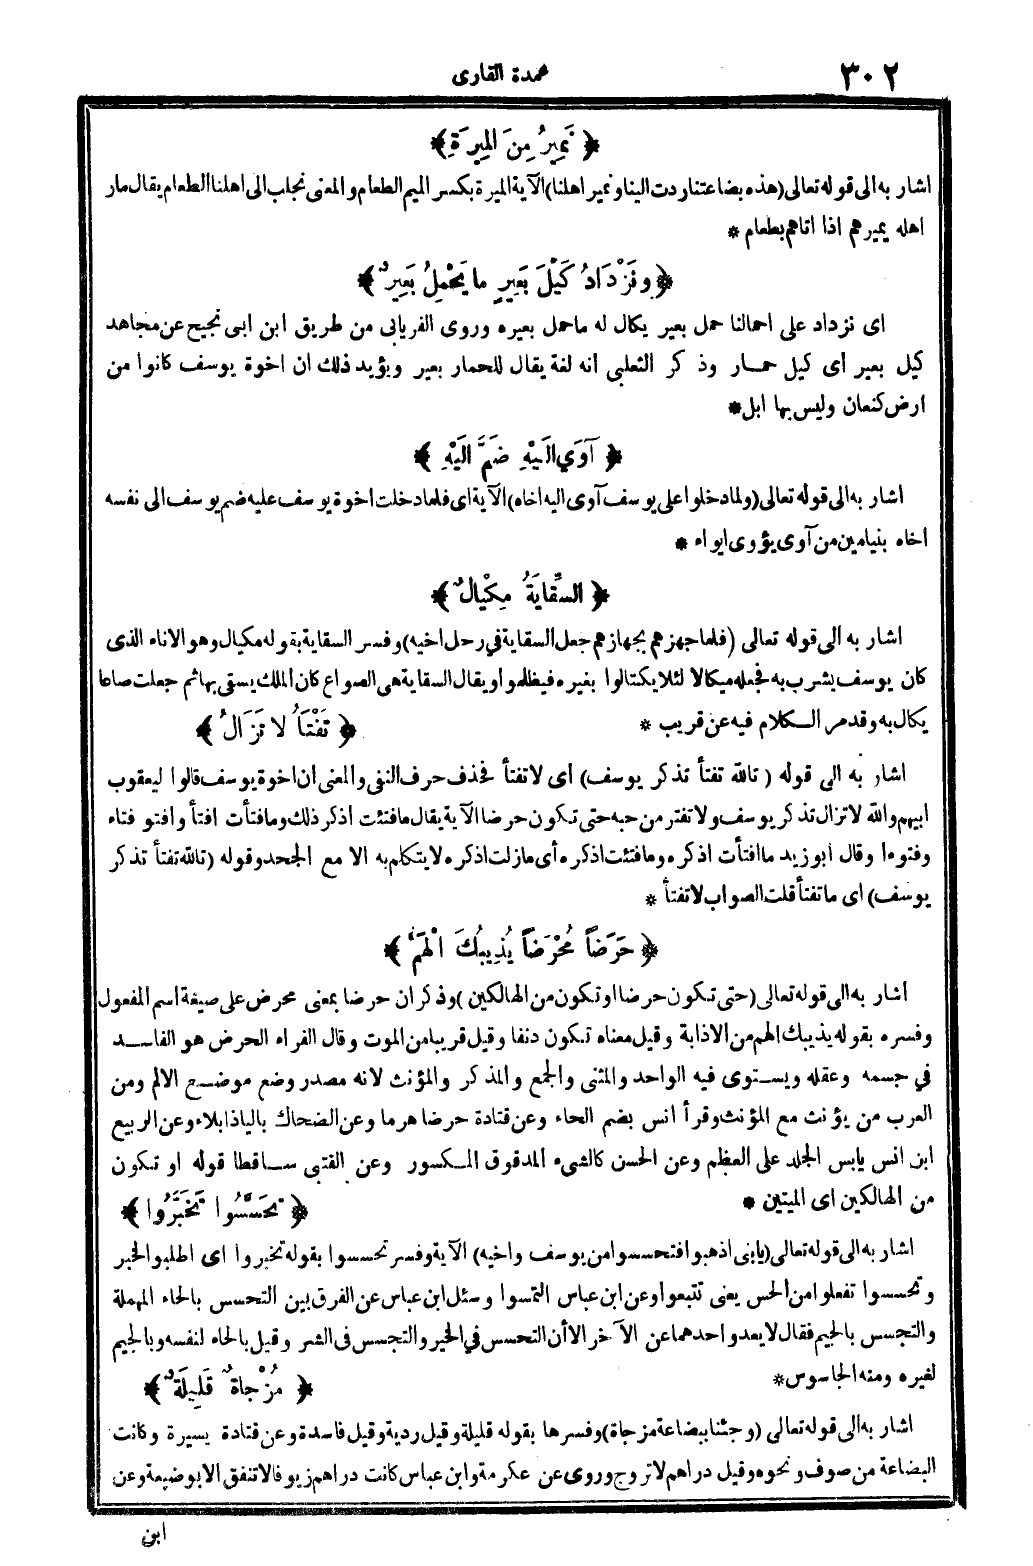 ٣٠٢
عمدة القارى
﴿ نَمِيرُ مِنَ المِيرَةِ ﴾
اشار به الى قوله تعالى (هذه بضاعتنا ردت الينا ونمير اهلنا) الآية الميرة بكسر الميم الطعام والمعنى نجلب الى اهلنا الطعام يقال مار
اهله يميرهم اذا اتاهم بطعام *
﴿ ونَزْدَادُ كَيْلَ بَعِيرٍ ما يَحْمِلُ بَعِيرٌ ﴾
اى نزداد على احمالنا حمل بعير يكال له ماحمل بعيره وروى الفريابى من طريق ابن ابى نجيح عن مجاهد
كيل بعير اى كيل حمار وذكر الثعلبى انه لغة يقال للحمار بعير ويؤيد ذلك ان اخوة يوسف كانوا من
ارض كنعان وليس بها ابل *
﴿ آوَي الَيْهِ ضَمَّ الَيْهِ ﴾
اشار به الى قوله تعالى (ولما دخلوا على يوسف آوى اليه اخاه) الآية اى فلما دخلت اخوة يوسف عليه ضم يوسف الى نفسه
اخاه بنيامين من آوى يؤوى ايواء *
﴿ السِّقايَةُ مِكْيالٌ ﴾
اشار به الى قوله تعالى (فلما جهزهم بجهازهم جعل السقاية في رحل اخيه) وفسر السقاية بقوله مكيال وهو الاناء الذى
كان يوسف يشرب به فجعله ميكالا لئلا يكتالوا بغيره فيظلموا ويقال السقاية هى الصواع كان الملك يسقى بها ثم جعلت صاعا
يكال به وقدمر الكلام فيه عن قريب * ﴿ تَفْتَأُ لا تَزَالُ ﴾
اشار به الى قوله (تالله تفتأ تذكر يوسف) اى لا تفتأ فحذف حرف النفى والمعنى ان اخوة يوسف قالوا ليعقوب
ابيهم والله لا تزال تذكر يوسف ولا تفتر من حبه حتى تكون حرضا الآية يقال مافتئت اذكر ذلك ومافتأت افتأ وافتو فتاء
وفتوءا وقال ابوزيد ماافتأت اذكره ومافتئت اذكره أى مازلت اذكره لا يتكلم به الا مع الجحد وقوله (تالله تفتأ تذكر
يوسف) اى ماتفتأ قلت الصواب لا تفتأ *
﴿ حَرَضاً مُحْرَضاً يُذِيبُكَ الْهَمُّ ﴾
اشار به الى قوله تعالى (حتى تكون حرضا او تكون من الهالكين) وذكر ان حرضا بمعنى محرض على صيغة اسم المفعول
وفسره بقوله يذيبك الهم من الاذابة وقيل معناه تكون دنفا وقيل قريبا من الموت وقال الفراء الحرض هو الفاسد
في جسمه وعقله ويستوى فيه الواحد والمثنى والجمع والمذكر والمؤنث لانه مصدر وضع موضع الالم ومن
العرب من يؤنث مع المؤنث وقرأ انس بضم الحاء وعن قتادة حرضا هرما وعن الضحاك باليا ذابلاء وعن الربيع
ابن انس يابس الجلد على العظم وعن الحسن كالشىء المدقوق المكسور وعن القتبى ساقطا قوله او تكون
من الهالكين اى الميتين * ﴿ تَحَسَّسُوا تَخَبَّرُوا ﴾
اشار به الى قوله تعالى (يابنى اذهبوا فتحسسوا من يوسف واخيه) الآية وفسر تحسسوا بقوله تخبروا اى اطلبوا الخبر
وتحسسوا تفعلوا من الحس يعنى تتبعوا وعن ابن عباس التمسوا وسئل ابن عباس عن الفرق بين التحسس بالحاء المهملة
والتجسس بالجيم فقال لا يعدو احدهما عن الآخر الا أن التحسس في الخير والتجسس فى الشر وقيل بالحاء لنفسه وبالجيم
لغيره ومنه الجاسوس * ﴿ مُزْجاةٌ قَلِيلَةٌ ﴾
اشار به الى قوله تعالى (وجئنا ببضاعة مزجاة) وفسرها بقوله قليلة وقيل ردية وقيل فاسدة وعن قتادة يسيرة وكانت
البضاعة من صوف ونحوه وقيل دراهم لا تروج وروى عن عكرمة وابن عباس كانت دراهم زيوفا لا تنفق الا بوضيعة وعن
ابن